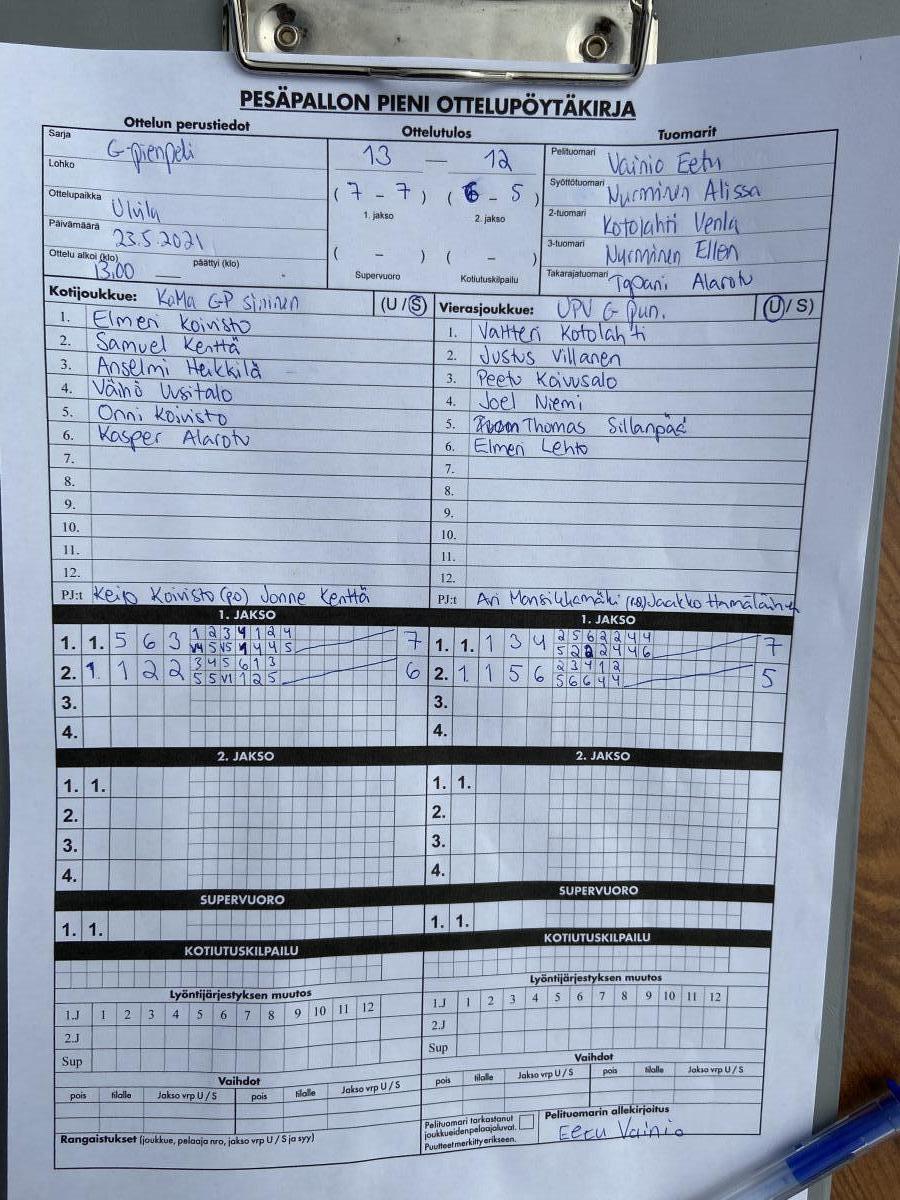 PESÄPALLON PIENI OTTELUPÖYTÄKIRJA
Ottelun perustiedot
Ottelutulos
Tuomarit
Sarja G-pienpeli
Lohko
Ottelupaikka Ulvila
Päivämäärä 23.5.2021
Ottelu alkoi (klo) 13.00 päättyi (klo)
13 – 12
( 7 - 7 ) ( 6 - 5 )
1. jakso 2. jakso
( - ) ( - )
Supervuoro Kotiutuskilpailu
Pelituomari Vainio Eetu
Syöttötuomari Nurminen Alissa
2-tuomari Kotolahti Venla
3-tuomari Nurminen Ellen
Takarajatuomari Tapani Alarotu
Kotijoukkue: KaMa GP sininen (U/S)
1. Elmeri Koivisto
2. Samuel Kenttä
3. Anselmi Heikkilä
4. Väinö Uusitalo
5. Onni Koivisto
6. Kasper Alarotu
7.
8.
9.
10.
11.
12.
PJ:t Keijo Koivisto (PO) Jonne Kenttä
Vierasjoukkue: UPV G pun. (U/S)
1. Valtteri Kotolahti
2. Justus Villanen
3. Peetu Koivusalo
4. Joel Niemi
5. Thomas Sillanpää
6. Elmeri Lehto
7.
8.
9.
10.
11.
12.
PJ:t Ari Mansikkamäki Jaakko Hämäläinen
1. JAKSO
1. 1. 5 6 3 1 2 3 4 1 2 4 7
2. 1 1 2 2 3 4 5 6 1 3 6
5 5 V1 1 2 5
3.
4.
1. JAKSO
1. 1. 1 3 4 2 5 6 2 2 4 4 7
5 2 2 2 4 4 6
2. 1 1 5 6 2 3 4 1 2 5
5 6 6 4 4
3.
4.
2. JAKSO
1. 1.
2.
3.
4.
2. JAKSO
1. 1.
2.
3.
4.
SUPERVUORO
1. 1.
SUPERVUORO
1. 1.
KOTIUTUSKILPAILU
KOTIUTUSKILPAILU
Lyöntijärjestyksen muutos
1.J 1 2 3 4 5 6 7 8 9 10 11 12
2.J
Sup
Lyöntijärjestyksen muutos
1.J 1 2 3 4 5 6 7 8 9 10 11 12
2.J
Sup
Vaihdot
pois tilalle Jakso vrp U / S pois tilalle Jakso vrp U / S
Vaihdot
pois tilalle Jakso vrp U / S pois tilalle Jakso vrp U / S
Rangaistukset (joukkue, pelaaja nro, jakso vrp U / S ja syy)
Pelituomari tarkastanut
joukkueiden pelaajaluvat.
Puutteet merkitty erikseen.
Pelituomarin allekirjoitus
Eetu Vainio